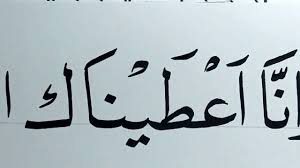 إنَّا أَعْطَيْنَاكَ ا